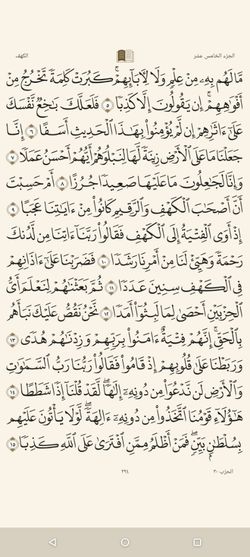 الكهف الجزء الخامس عشر
مَّا لَهُم بِهِۦ مِنْ عِلْمٍ وَلَا لِآبَآئِهِمْ ۚ كَبُرَتْ كَلِمَةً تَخْرُجُ مِنْ
أَفْوَٰهِهِمْ ۚ إِن يَقُولُونَ إِلَّا كَذِبًا ٥ فَلَعَلَّكَ بَٰخِعٌ نَّفْسَكَ
عَلَىٰٓ ءَاثَٰرِهِمْ إِن لَّمْ يُؤْمِنُوا۟ بِهَٰذَا ٱلْحَدِيثِ أَسَفًا ٦ إِنَّا
جَعَلْنَا مَا عَلَى ٱلْأَرْضِ زِينَةً لَّهَا لِنَبْلُوَهُمْ أَيُّهُمْ أَحْسَنُ عَمَلًا ٧
وَإِنَّا لَجَٰعِلُونَ مَا عَلَيْهَا صَعِيدًا جُرُزًا ٨ أَمْ حَسِبْتَ
أَنَّ أَصْحَٰبَ ٱلْكَهْفِ وَٱلرَّقِيمِ كَانُوا۟ مِنْ ءَايَٰتِنَا عَجَبًا ٩
إِذْ أَوَى ٱلْفِتْيَةُ إِلَى ٱلْكَهْفِ فَقَالُوا۟ رَبَّنَآ ءَاتِنَا مِن لَّدُنكَ
رَحْمَةً وَهَيِّئْ لَنَا مِنْ أَمْرِنَا رَشَدًا ١٠ فَضَرَبْنَا عَلَىٰٓ ءَاذَانِهِمْ
فِى ٱلْكَهْفِ سِنِينَ عَدَدًا ١١ ثُمَّ بَعَثْنَٰهُمْ لِنَعْلَمَ أَىُّ
ٱلْحِزْبَيْنِ أَحْصَىٰ لِمَا لَبِثُوٓا۟ أَمَدًا ١٢ نَّحْنُ نَقُصُّ عَلَيْكَ نَبَأَهُم
بِٱلْحَقِّ ۚ إِنَّهُمْ فِتْيَةٌ ءَامَنُوا۟ بِرَبِّهِمْ وَزِدْنَٰهُمْ هُدًى ١٣
وَرَبَطْنَا عَلَىٰ قُلُوبِهِمْ إِذْ قَامُوا۟ فَقَالُوا۟ رَبُّنَا رَبُّ ٱلسَّمَٰوَٰتِ
وَٱلْأَرْضِ لَن نَّدْعُوَا۟ مِن دُونِهِۦٓ إِلَٰهًا ۖ لَّقَدْ قُلْنَآ إِذًا شَطَطًا ١٤
هَٰٓؤُلَآءِ قَوْمُنَا ٱتَّخَذُوا۟ مِن دُونِهِۦٓ ءَالِهَةً ۖ لَّوْلَا يَأْتُونَ عَلَيْهِم
بِسُلْطَٰنٍۭ بَيِّنٍ ۖ فَمَنْ أَظْلَمُ مِمَّنِ ٱفْتَرَىٰ عَلَى ٱللَّهِ كَذِبًا ١٥
٢٩٤ الحزب ٣٠